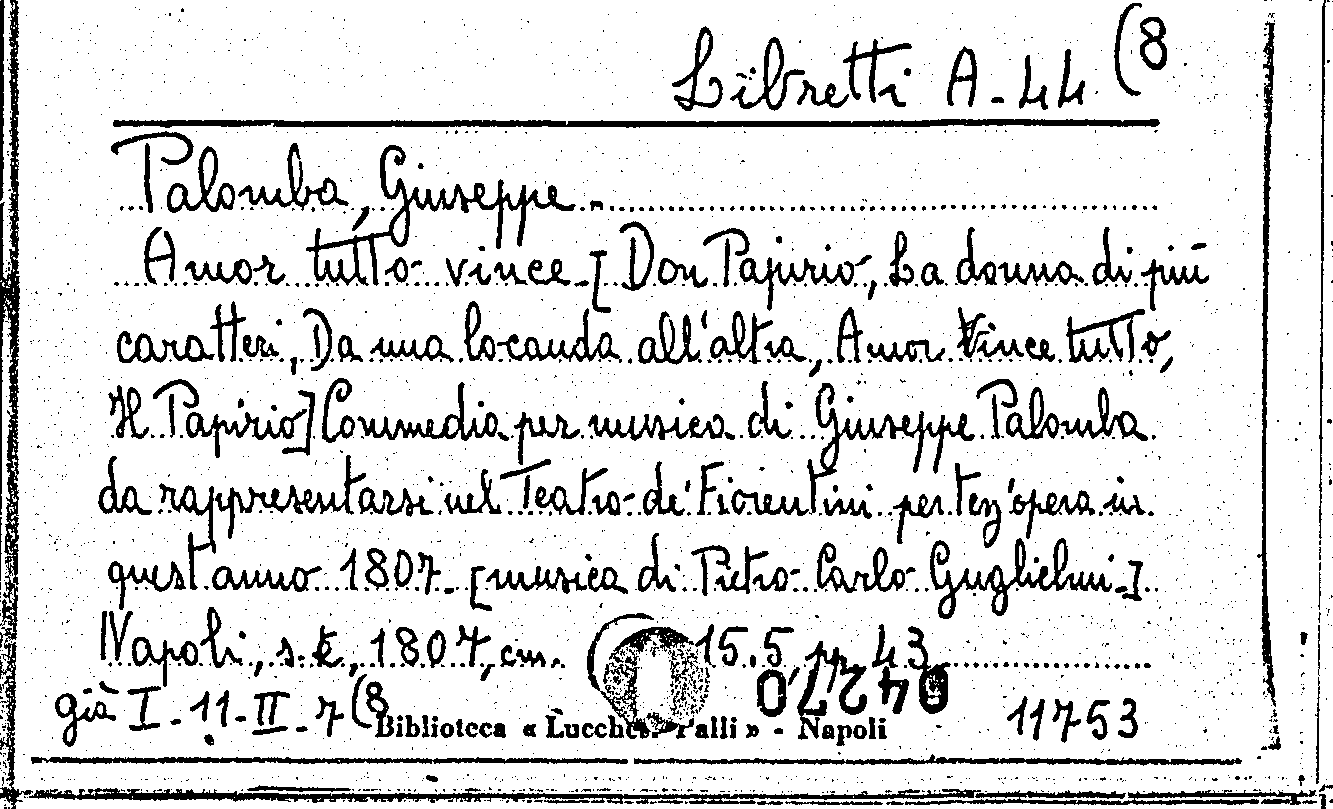 Libretti A-44 (8
Palomba, Giuseppe -
Amor tutto vince - [Don Papirio, La donna di più
caratteri, Da una locanda all'altra, Amor Vince tutto,
Il Papirio] Commedia per musica di Giuseppe Palomba
da rappresentarsi nel Teatro de' Fiorentini per terz'opera in
quest'anno 1807 - [musica di Pietro Carlo Guglielmi -]
Napoli, s.t., 1807, cm. 15.5, pp. 43
04270
già I-11-II-7(8 11753
Biblioteca « Lucchesi Palli » - Napoli